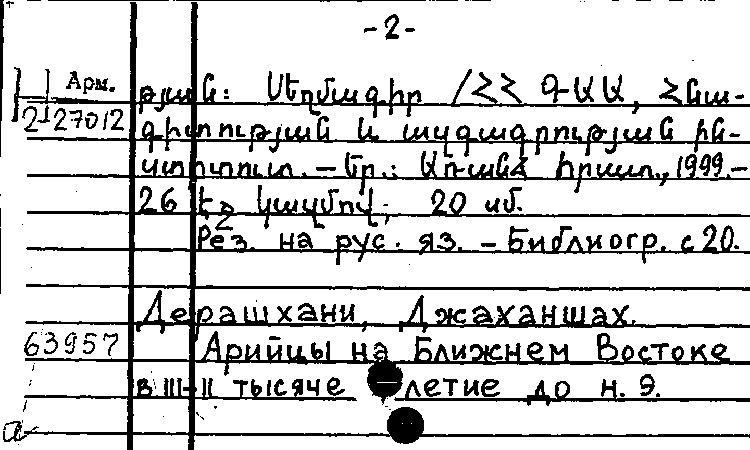 -2-
Арм. թյան: Սեղմագիր /ՀՀ ԳԱԱ, Հնա-
2127012 գիտության և ազգագրության ին-
ստիտուտ. - Եր.: Առանձ հրատ., 1999.-
26 էջ կազմով; 20 սմ.
Рез. на рус. яз. - Библиогр. с 20.
Дерашхани, Джаханшах.
63957 Арийцы на Ближнем Востоке
в III-II тысяче летие до н. э.